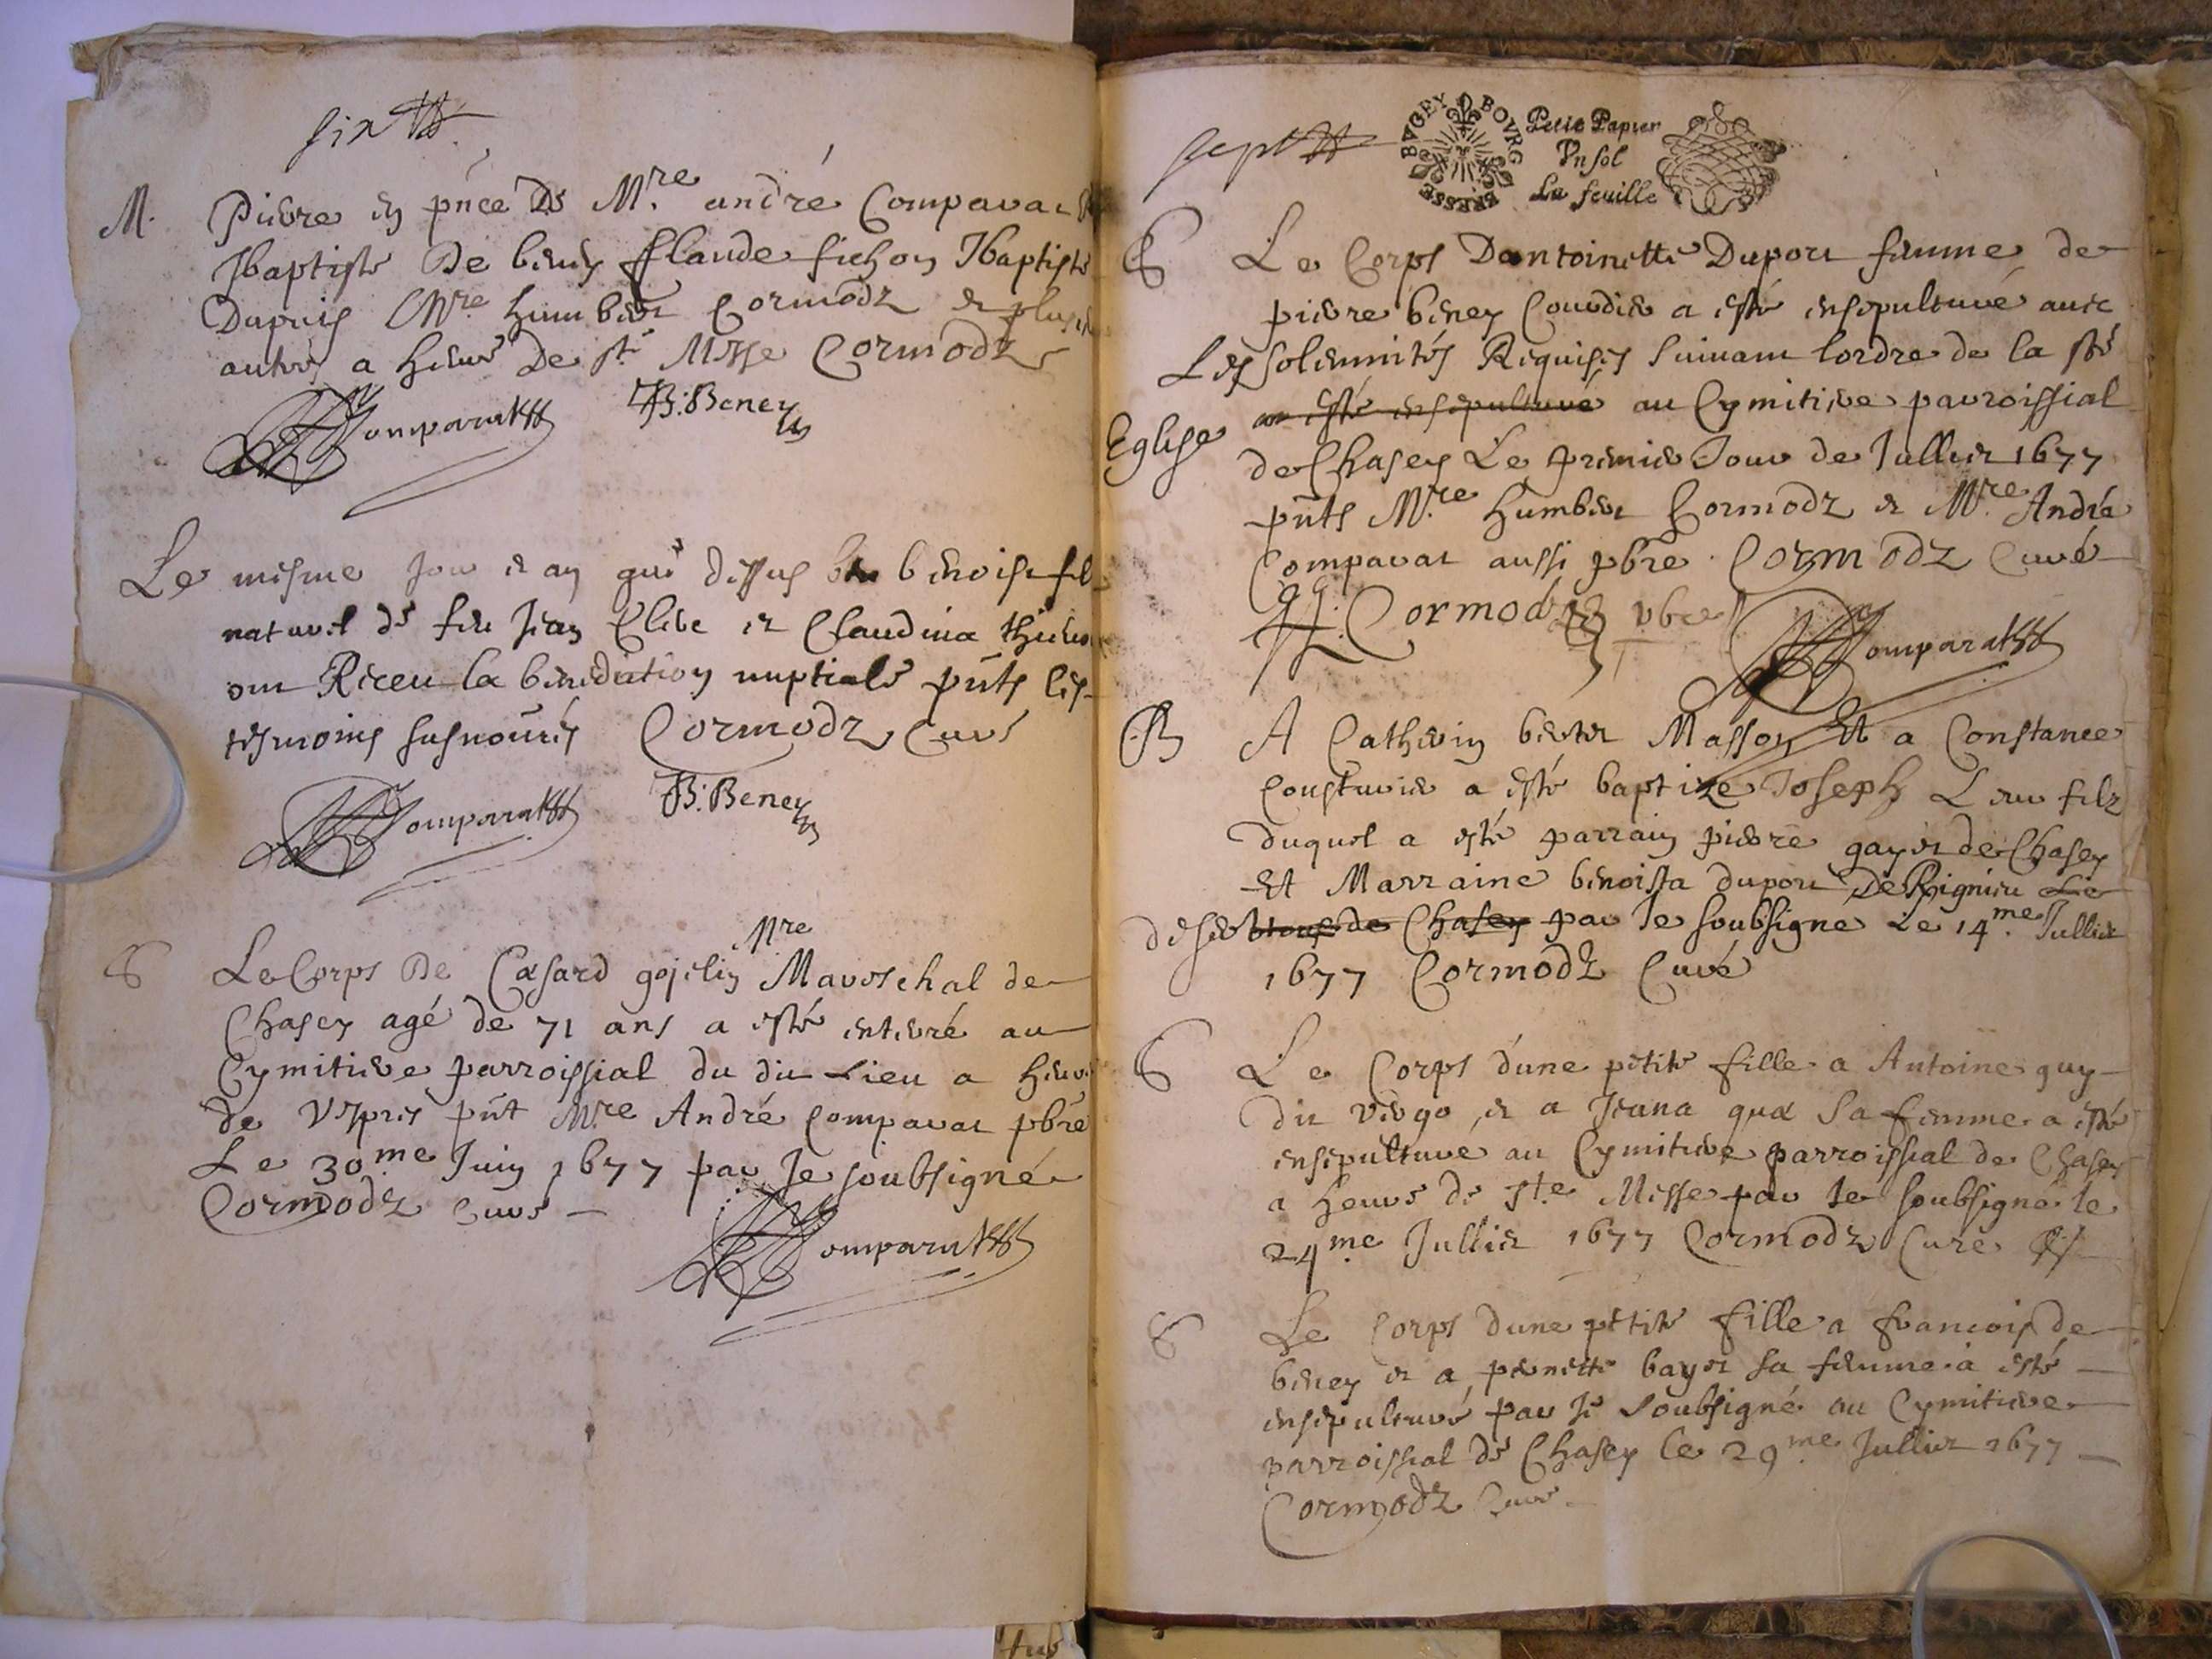 six
M. Pierre en pnce de Mre andré Comparat
Jbaptiste De beney Claude fichon Jbaptiste
Dupuis Mre humbert Cormodz et plusi
autres a heure de ste Messe Cormodz
Comparat JB: Beney
Le mesme jour et an que dessus benoist fils
naturel de feu Jean et Claudina
ont Receu la benediction nuptiale pnts les
tesmoins susnomés Cormodz Curé
Comparat JB: Beney
Mre
S Le Corps De Cesard gojelin Mareschal de
Chasey agé de 71 ans a esté enterré au
Cymitiere parroissial du dit Lieu a heure
de Vespres pnt Mre André Comparat pbre
Le 30me Juin 1677 par Je soubsigné
Cormodz Curé
Comparat
sept
BVGEY BOVRG BRESSE
Petit Papier
Vn sol
La feuille
S Le Corps Dantoinette Duport femme de
pierre beney Cordier a esté ensepulturé avec
Les solemnités Requises suivant lordre de la ste
Eglise a esté ensepulturé au Cymitiere parroissial
de Chasey Le premier Jour de Jullier 1677
pnts Mre humbert Cormodz et Mre André
Comparat aussi pbre. Cormodz Curé
Cormodz pbre
Comparat
B A Catherin berter Masson Et a Constance
Cousturier a esté baptizé Joseph Leur filz
duquel a esté parrain pierre gayet de Chasey
Et Marraine benoista duport De Rignieu Le
desert de Chasey par Je soubsigne Le 14me Jullier
1677 Cormodz Curé
S Le Corps d'une petite fille a Antoine guy
dit et a Jeana sa femme a esté
ensepulture au Cymitiere parroissial de Chasey
a heure de ste Messe par Je soubsigné le
24me Jullier 1677 Cormodz Curé
S Le Corps dune petite fille a francois de
beney et a pernette bayet sa femme a esté
ensepulturé par Je soubsigné au Cymitiere
parroissial de Chasey le 29me Jullier 1677
Cormodz Curé